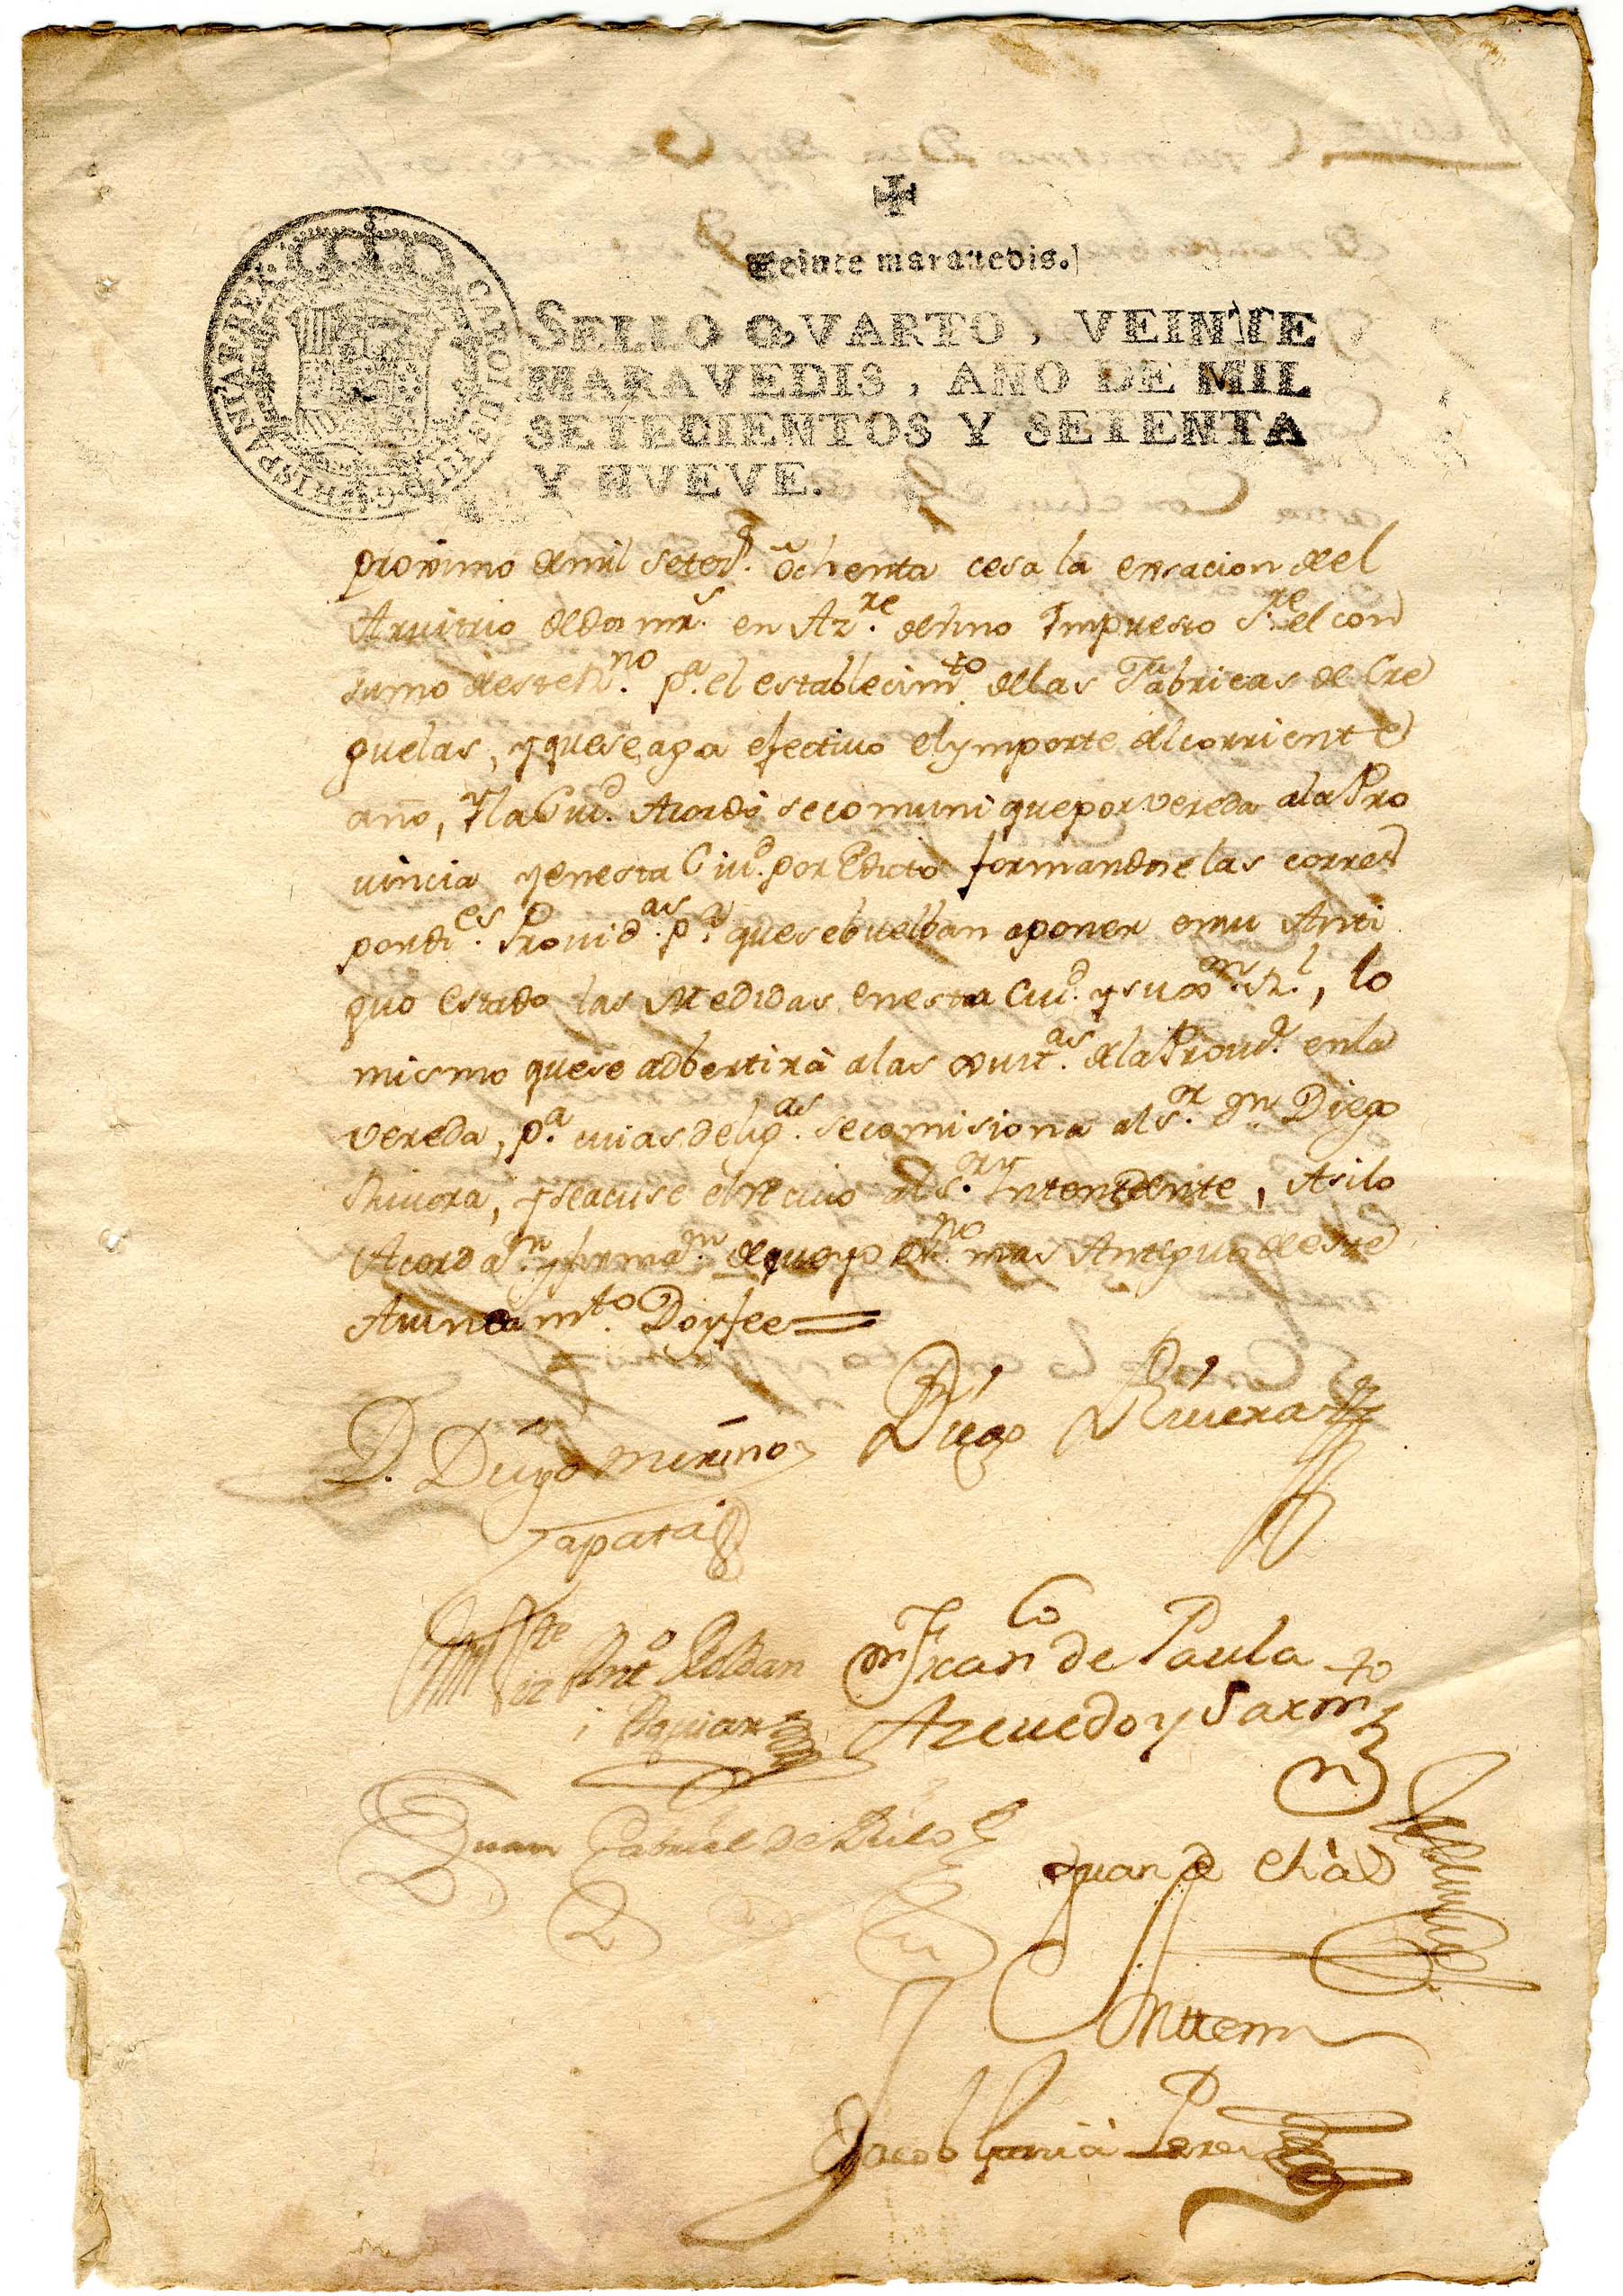 Veinte maravedis.
CAROLUS III D G HISPANIAR REX
SELLO QVARTO, VEINTE
MARAVEDIS, AÑO DE MIL
SETECIENTOS Y SETENTA
Y NVEVE.
proximo de mil setecs. ochenta cesa la exsacion del
Arvitrio de dos mrs. en Azre. de vino Impuesto sre. el con
sumo de este Rno. pa. el establecimto. de las Fabricas de Cre
guelas, y que se aga efectivo el ymporte del corriente
año, Y la Ciud. Acordó se comunique por vereda a la Pro
vincia y en esta Ciud. por Edicto formandose las corres
pondies. Providas. pa. que se buelban a poner en su Anti
guo estado las Medidas en esta Ciud. y su Rl., lo
mismo que se adbertirá a las de la Provd. en la
vereda, pa. cuias deligas. se comisiona al Sor. Dn. Diego
Rivera, y se acuse el recivo al Sor. Yntendente, Asi lo
Acordan. y firman. de que yo Esno. mas Antiguo de este
Aiuntamto. Doy fee =
D. Diego Merino
Zapata
Diego Rivera
Vizte Anto. Roldan
i Aguiar
Dn. Franco de Paula
Azevedo y Sarmto
Juan Gabriel de
Juan de
Anttemi
Jacobo Garcia Perez